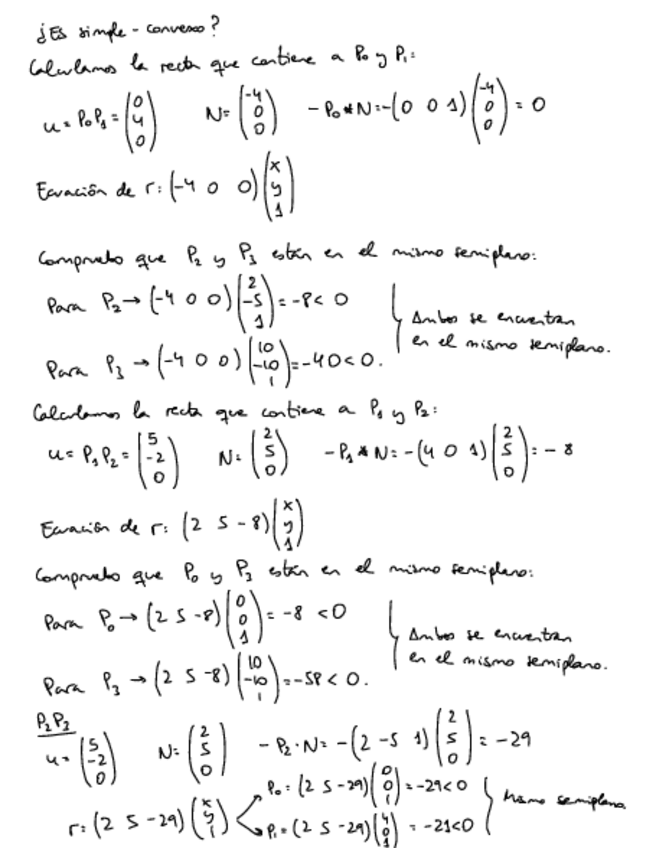 ¿Es simple-convexo?
Calculamos la recta que contiene a P₀ y P₁:
u = P₀P₁ = (0 4 0) N = (-4 0 0) - P₀*N = -(0 0 1)(-4 0 0) = 0
Ecuación de r: (-4 0 0)(x y 1)
Compruebo que P₂ y P₃ están en el mismo semiplano:
Para P₂ → (-4 0 0)(2 -5 1) = -8 < 0
Ambos se encuentran
en el mismo semiplano.
Para P₃ → (-4 0 0)(10 -10 1) = -40 < 0.
Calculamos la recta que contiene a P₁ y P₂:
u = P₁P₂ = (5 -2 0) N = (2 5 0) - P₁*N = -(4 0 1)(2 5 0) = -8
Ecuación de r: (2 5 -8)(x y 1)
Compruebo que P₀ y P₃ están en el mismo semiplano:
Para P₀ → (2 5 -8)(0 0 1) = -8 < 0
Ambos se encuentran
en el mismo semiplano.
Para P₃ → (2 5 -8)(10 -10 1) = -58 < 0.
P₂P₃
u = (5 -2 0) N = (2 5 0) - P₂·N = -(2 -5 1)(2 5 0) = -29
r: (2 5 -29)(x y 1)
P₀ = (2 5 -29)(0 0 1) = -29 < 0
P₁ = (2 5 -29)(4 0 1) = -21 < 0
Mismo semiplano